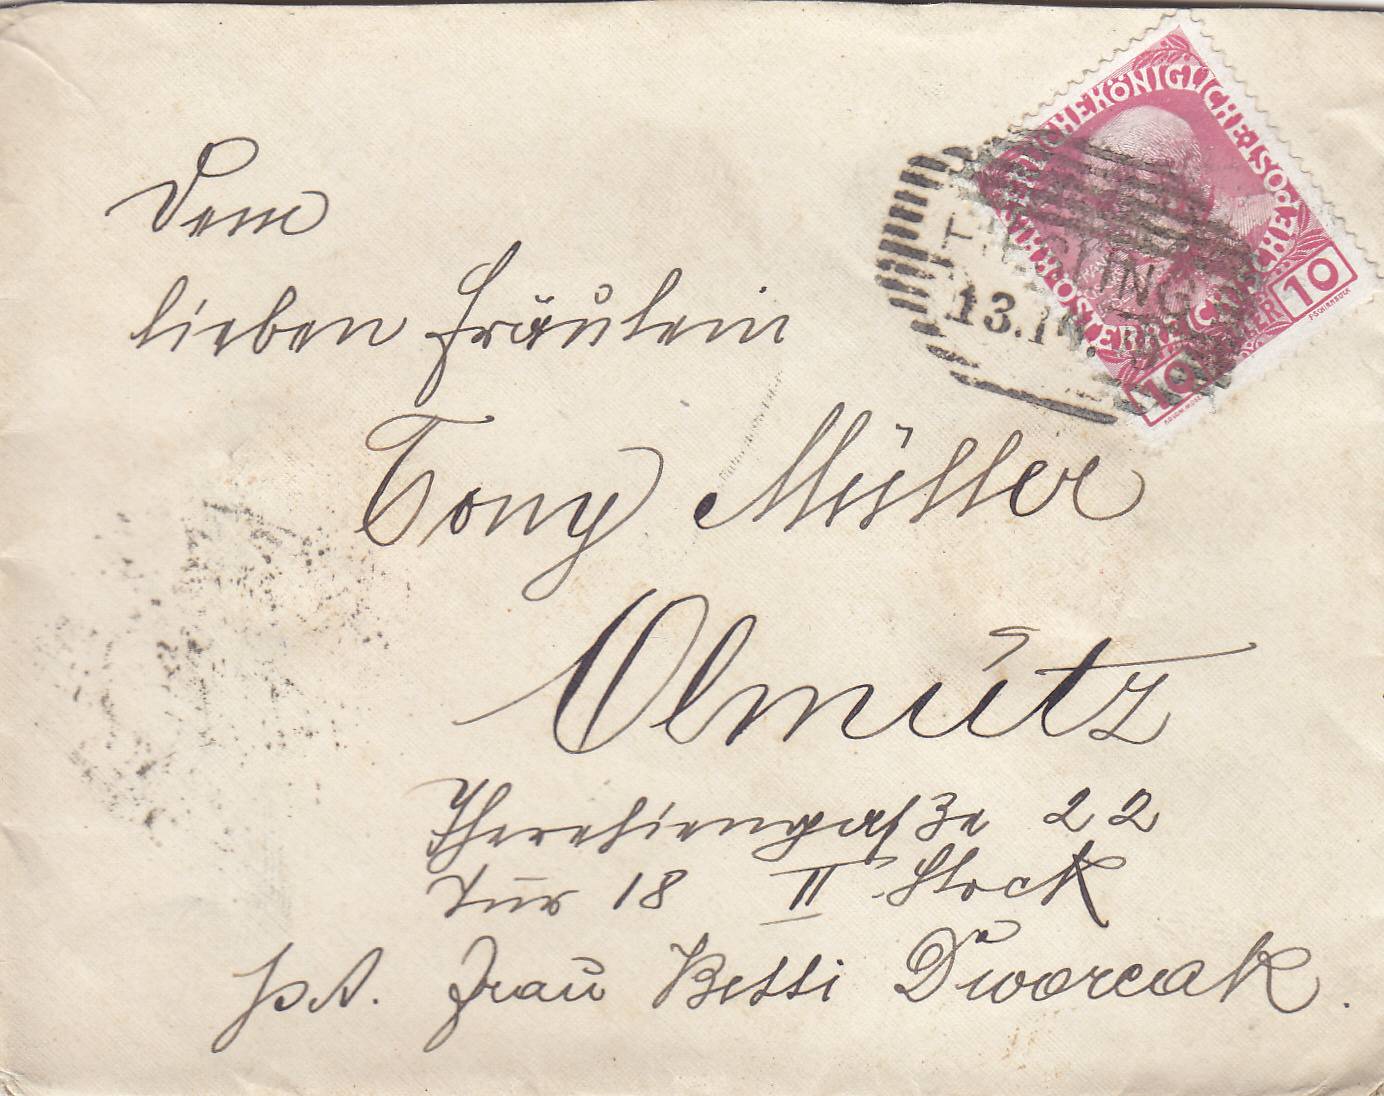 Dem
lieben Fräulein
Tony Müller
Olmütz
Theresiengasse 22
Tür 18 II Stock
p. A. Frau Bessi Dworcak.
KÖNIGLICHE
ÖSTERREICHISCHE
POST
10
HELLER
10
13.